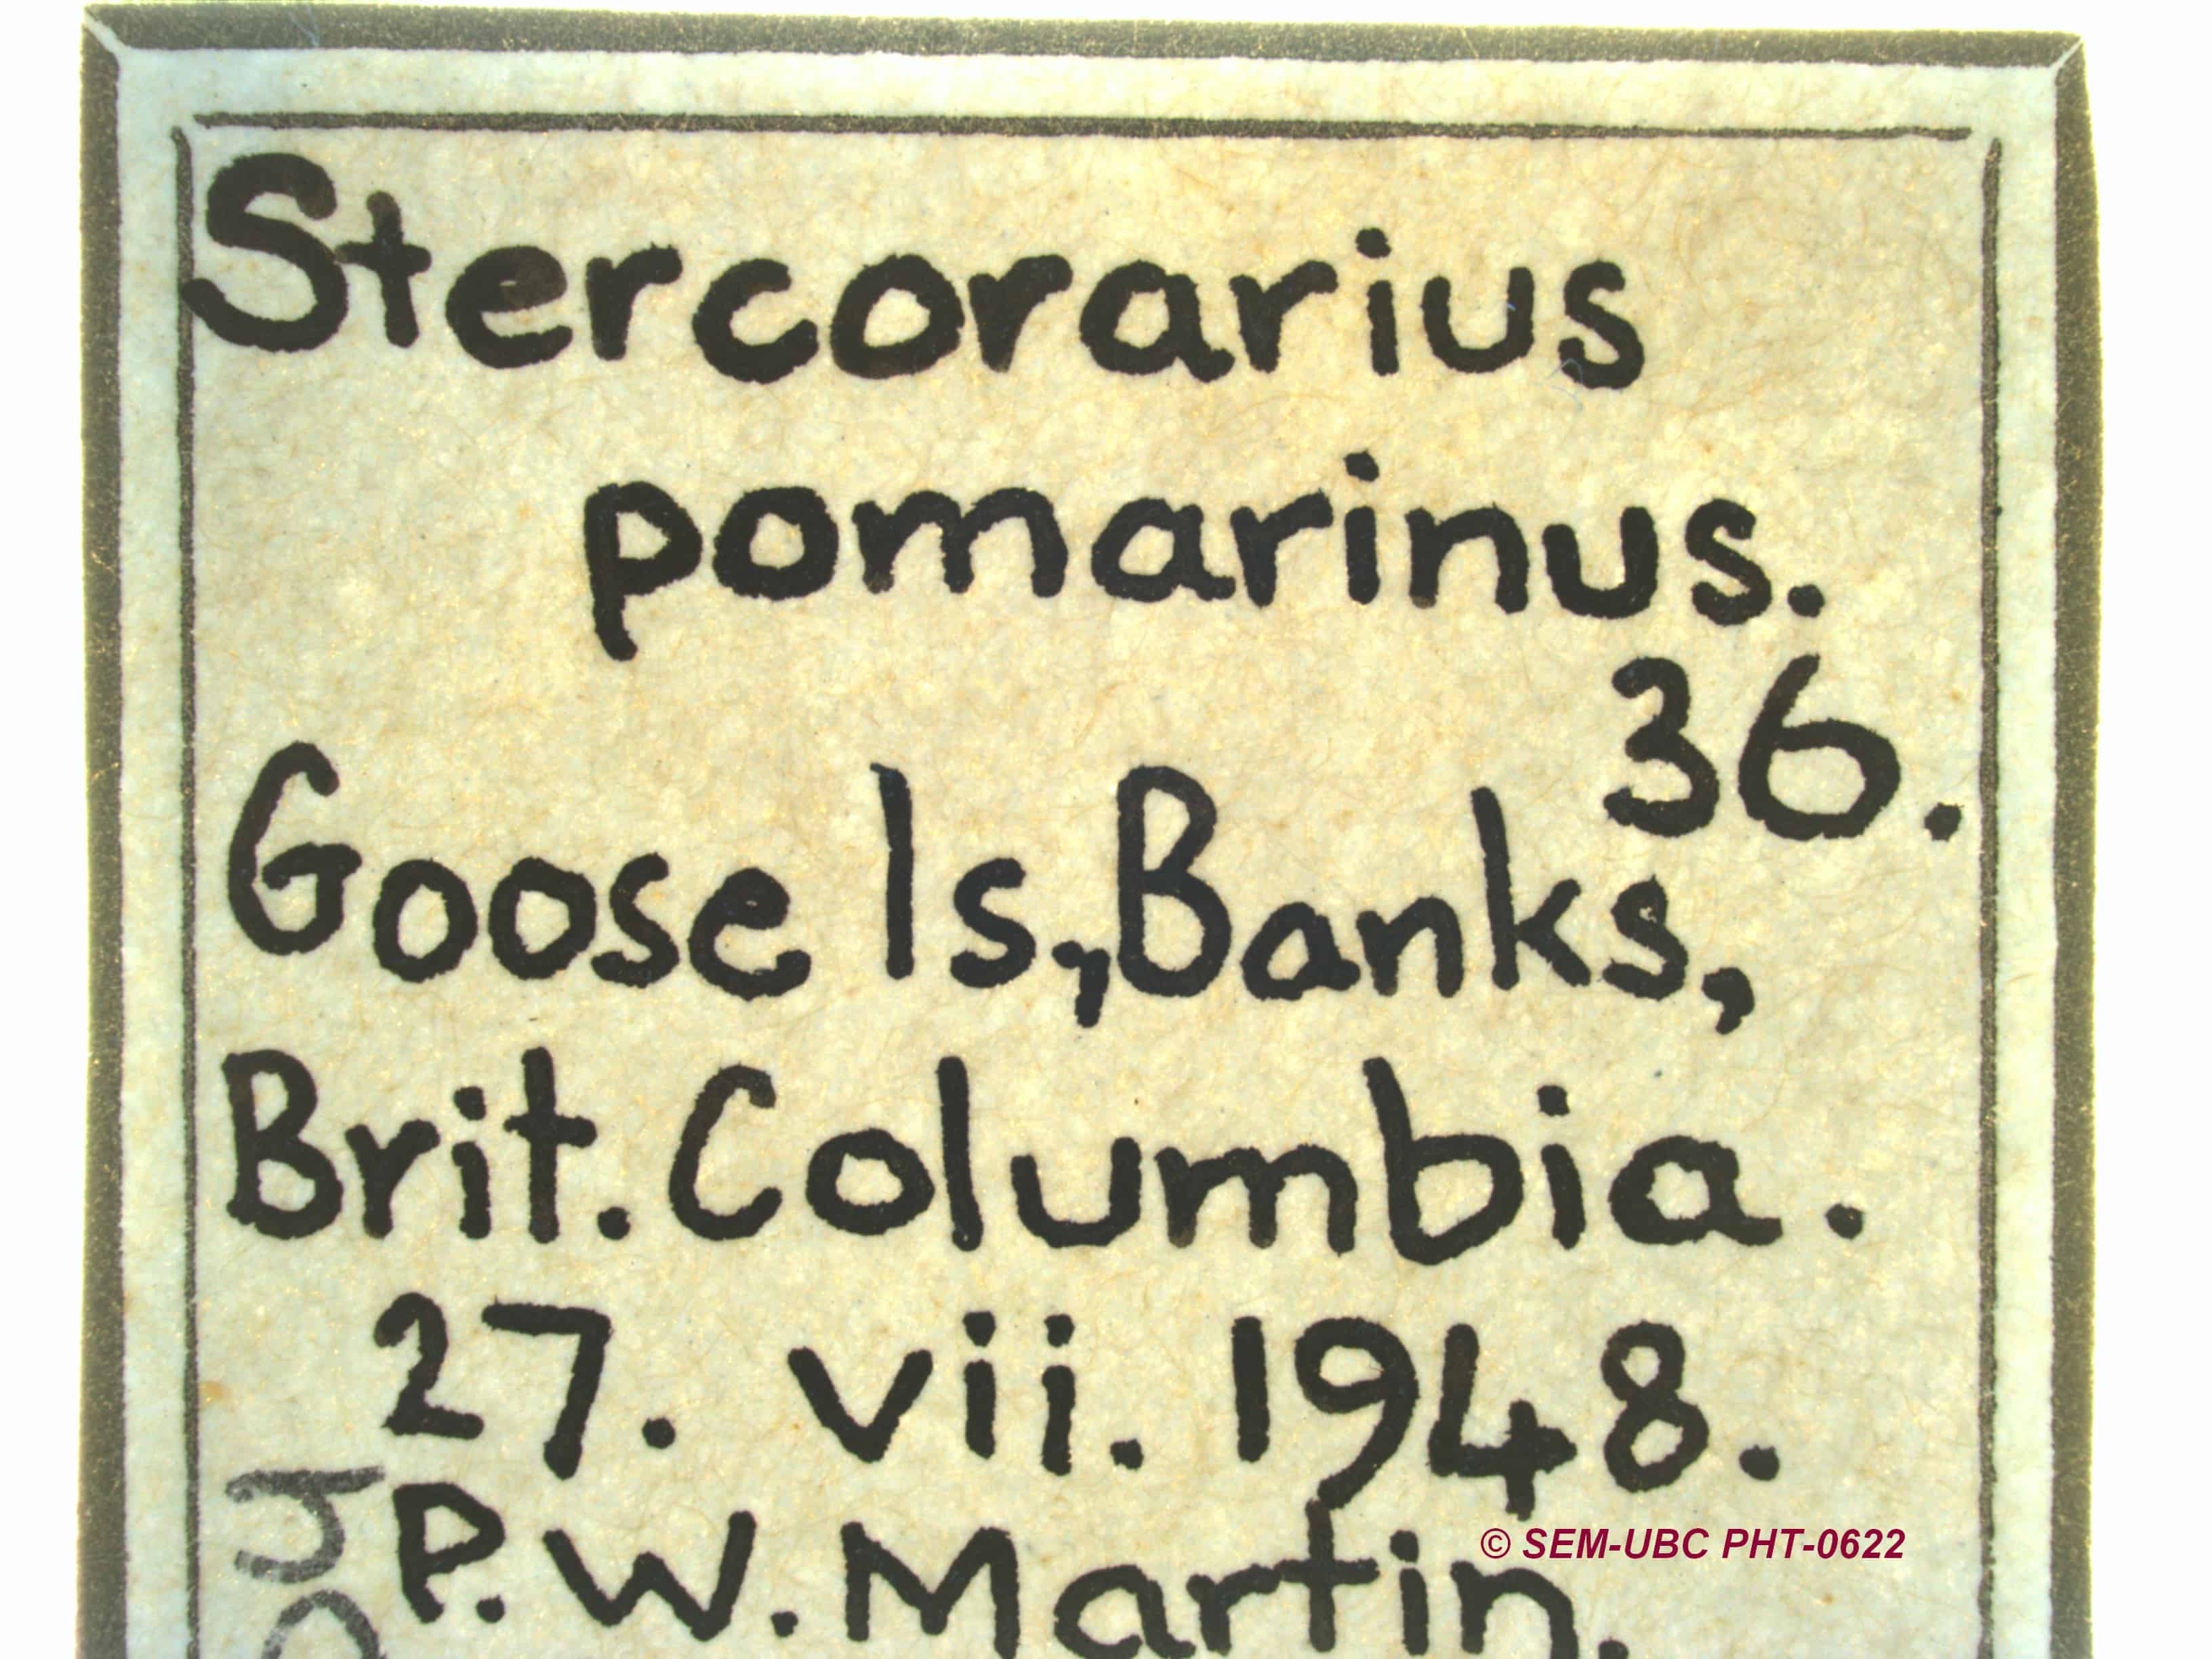 Stercorarius
pomarinus.
36.
Goose Is, Banks,
Brit. Columbia.
27. vii. 1948.
P. W. Martin.
© SEM-UBC PHT-0622